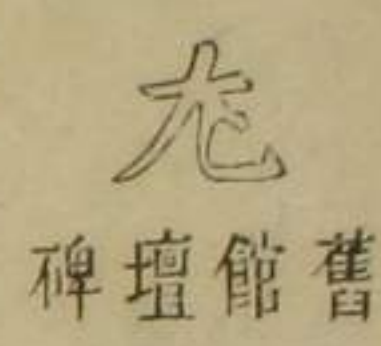 舊館壇碑